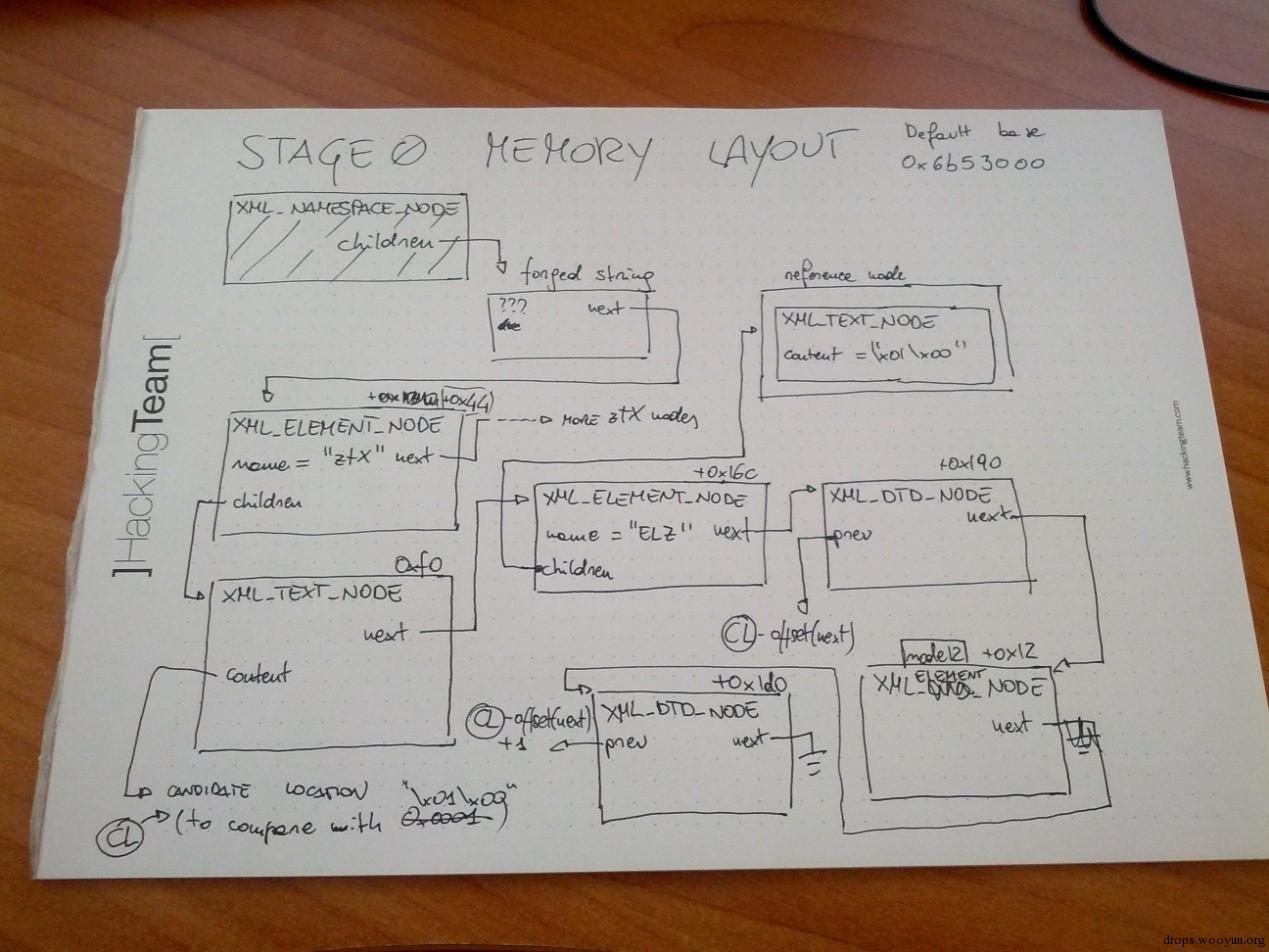 STAGE 0 MEMORY LAYOUT
Default base
0x6b53000
XML_NAMESPACE_NODE
children
forged string
???
next
reference node
XML_TEXT_NODE
content = "\x01\x00"
+0x44)
XML_ELEMENT_NODE
name = "ztX" next
children
MORE ztX nodes
+0x16C
XML_ELEMENT_NODE
name = "ELZ" next
children
+0x190
XML_DTD_NODE
next
prev
0xf0
XML_TEXT_NODE
next
content
CL - offset(next)
node12 +0x12
ELEMENT
XML_ _NODE
next
+0x1d0
XML_DTD_NODE
prev next
CL - offset(next)
+1
CANDIDATE LOCATION "\x01\x00"
CL (to compare with 0x0001)
]HackingTeam[
www.hackingteam.com
drops.wooyun.org